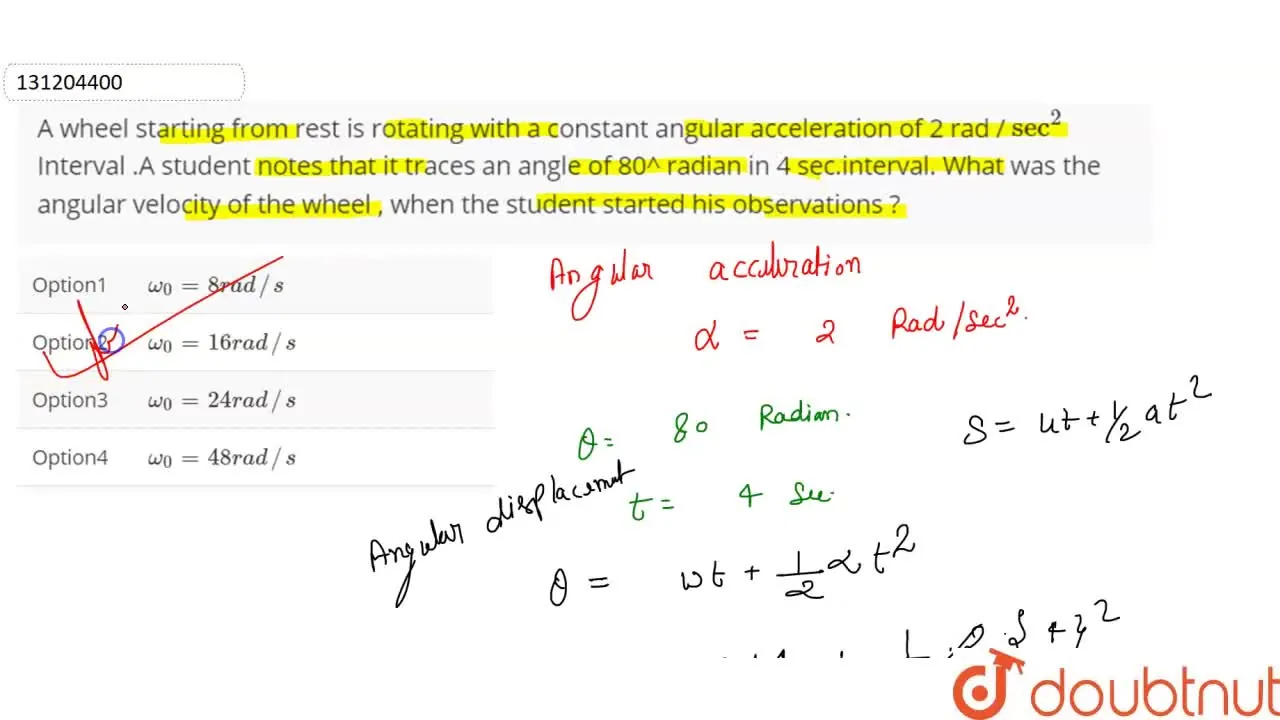 131204400
A wheel starting from rest is rotating with a constant angular acceleration of 2 rad / sec²
Interval .A student notes that it traces an angle of 80^ radian in 4 sec.interval. What was the
angular velocity of the wheel , when the student started his observations ?
Option1 ω₀ = 8rad/s
Option2 ω₀ = 16rad/s
Option3 ω₀ = 24rad/s
Option4 ω₀ = 48rad/s
Angular acculuration
α = 2 Rad/sec².
θ = 80 Radian.
S = ut + 1/2 at²
t = 4 Sec.
Angular displacement
θ = wt + 1/2 αt²
doubtnut